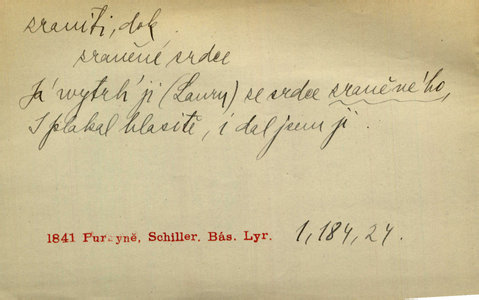 zraniti, dok.
zraněné srdce
Já wytrh' ji (Lauru) se srdce zraněného,
I plakal hlasitě, i dal jsem ji.
1841 Purkyně, Schiller. Bás. Lyr. 1, 184, 24.